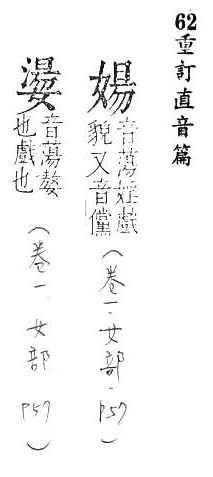 62重訂直音篇
婸
音蕩婬戲
貌又音儻
(卷一.女部.P57)
音蕩嫯
也戲也
(卷一.女部 P57)